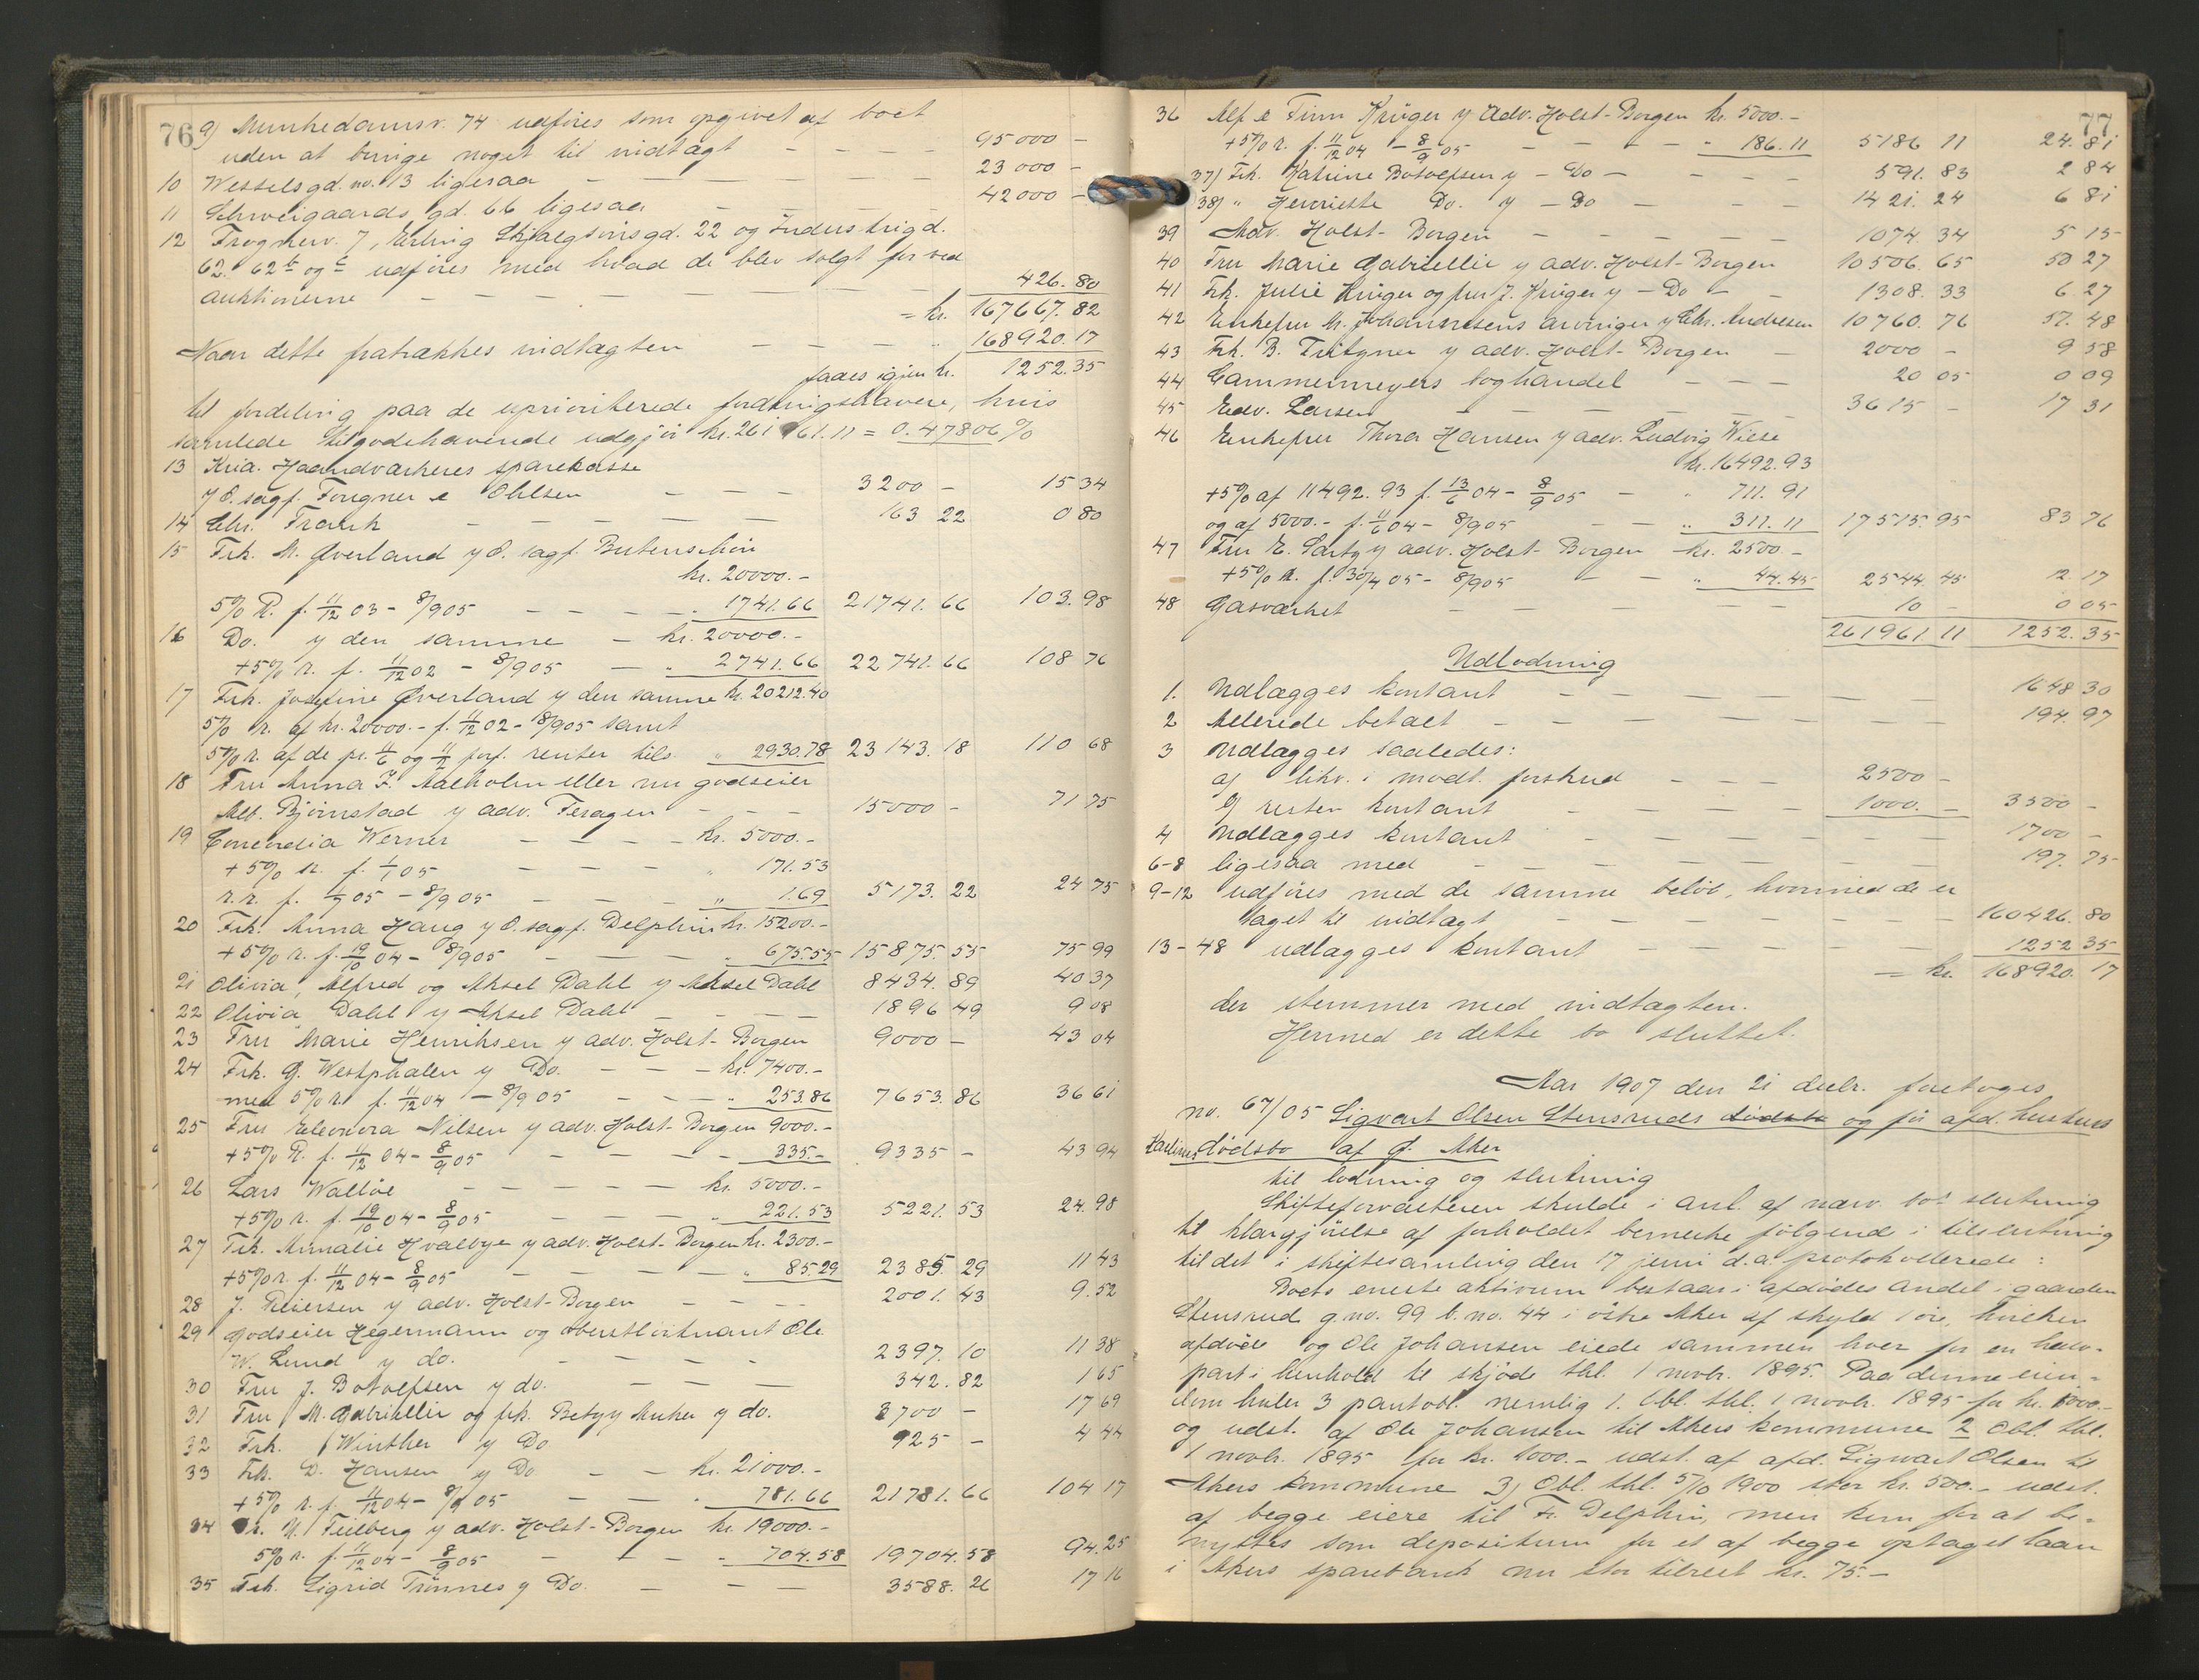 76
9) Munkedamsv. 74 udføres som opgivet af boet
uden at bringe noget til indtægt — — — — 95000 —
10 Wesselsgd. no. 13 ligesaa — — — — 23000 —
11 Schweigaards gd. 66 ligesaa — — — — 42000 —
12 Frognerv. 7, Erling Skjalgsønsgd. 22 og Industrigd.
62. 62b og c udføres med hvad de blev solgt for ved
auktionerne — — — — 426.80
= kr. 167667.82
Naar dette fratrækkes indtægten — — — — " 168920.17
faaes igjen kr. 1252.35
til fordeling paa de uprioriterede fordringshavere, hvis
samlede tilgodehavende udgjør kr. 261961.11 = 0.47806 %
13 Kria. Haandværkeres sparekasse
y O.sagf. Fougner e Ohlsen — — — 3200 — 15 34
14 Chr. Frank — — — — 163 22 0 80
15 Frk. M. Øverland y O. sagf. Butenschøn
kr. 20000.—
5% R. f. 11/12 03 - 8/9 05 — — — " 1741.66 21741.66 103.98
16 Do. y den samme — kr. 20000.—
+5% r. f. 11/12 02 - 8/9 05 — " 2741.66 22741.66 108 76
17 Frk. Josefine Øverland y den samme kr. 20212.40
5% r. af kr. 20000.- f. 11/12 02 - 8/9 05 samt
5% r. af de pr. 11/6 og 11/12 forf. renter tils. " 2930.78 23143.18 110 68
18 Fru Anna F. Aalholm eller nu godseier
Alb. Bjørnstad y adv. Feragen — — 15000 — 71 75
19 Concordia Werner — — — kr. 5000.—
+5% r. f. 1/1 05 — — — " 171.53
r.r. f. 1/7 05 - 8/9 05 — — — " 1.69 5173.22 24 75
20 Frk. Anna Haug y O.sagf. Delphin kr. 15200.—
+5% r. f. 19/10 04 - 8/9 05 — — — " 675.55 15875.55 75 99
21 Olivia, Alfred og Aksel Dahl y Aksel Dahl 8434.89 40 37
22 Olivia Dahl y Aksel Dahl — — — 1896 49 9 08
23 Fru Marie Henriksen y adv. Holst-Borgen 9000 — 43 04
24 Frk. G. Westphalen y Do. — — — kr. 7400.—
med 5% r. f. 11/12 04 - 8/9 05 — — " 253.86 7653.86 36 61
25 Fru Eleonora Nilsen y adv. Holst-Borgen 9000.—
+5% R. f. 11/12 04 - 8/9 05 — — — 335.— 9335 — 43 94
26 Lars Walløe — — — — kr. 5000.—
+5% r. f. 19/10 04 - 8/9 05 — — — " 221.53 5221.53 24.98
27 Frk. Annalie Hvalbye y adv. Holst-Borgen kr. 2300.—
+5% r. f. 11/12 04 - 8/9 05 — — — " 85.29 2385.29 11 43
28 J. Reiersen y adv. Holst-Borgen — — — 2001.43 9.52
29 Godseier Hegermann og oberstløitnant Ole
W. Lund y do. — — — — 2397.10 11 38
30 Fru J. Botolfsen y do. — — — 342.82 1 65
31 Fru M. Gabrielli og frk. Betzy Anker y do. 3700 — 17 69
32 Frk. Winther y Do 925 — 4 44
33 Frk. D. Hansen y Do — — kr. 21000.—
+5% r. f. 11/12 04 - 8/9 05 — — " 781.66 21781.66 104 17
34 Fr. N. Feilberg y adv. Holst-Borgen kr. 19000.—
5% r. f. 11/12 04 - 8/9 05 — — — " 704.58 19704.58 94.25
35 Frk. Sigrid Trønnes y Do. — — — 3588.26 17 16
77
36 Alf e Finn Krüger y Adv. Holst-Borgen kr. 5000.—
+5% r. f. 11/12 04 - 8/9 05 — — — " 186.11 5186 11 24.81
37) Frk. Katrine Botolfsen y — Do — — — 591.83 2 84
38) " Henriette Do. y — Do — — 1421.24 6 81
39 Adv. Holst-Borgen — — — — 1074.34 5 15
40 Fru Marie Gabrielli y adv. Holst-Borgen 10506.65 50 27
41 Frk. Julie Krüger og fru J. Krüger y — Do — — 1308.33 6 27
42 Enkefru M. Johannesens arvinger y Chr. Andresen 10760.76 51.48
43 Frk. B. Fritzner y adv. Holst-Borgen — 2000 — 9 58
44 Cammermeyers boghandel — — — 20 05 0 09
45 Edv. Larsen — — — — 3615 — 17 31
46 Enkefru Thora Hansen y adv. Ludvig Wiese
kr. 16492.93
+5% af 11492.93 f. 13/6 04 - 8/9 05 — " 711.91
og af 5000.- f. 11/6 04 - 8/9 05 — — " 311.11 17515.95 83 76
47 Fru E. Sartz y adv. Holst-Borgen kr. 2500.—
+5% R. f. 30/4 05 - 8/9 05 — — " 44.45 2544.45 12 17
48 Gasværket — — — — 10 — 0 05
261961 11 1252.35
Udlodning
1. Udlægges kontant — — — — 1648 30
2 Allerede betalt — — — — 194.97
3 Udlægges saaledes:
a) likv. i modt. forskud — — — 2500 —
b) resten kontant — — — 1000.— 3500 —
4 Udlægges kontant — — — — 1700 —
6-8 ligesaa med — — — — 197.75
9-12 udføres med de samme beløb, hvormed de er
taget til indtægt — — — — 160426.80
13-48 udlægges kontant — — — — 1252 35
= kr. 168920.17
der stemmer med indtægten.
Hermed er dette bo sluttet.
Aar 1907 den 21 decbr. foretoges
no. 67/05 Sigvart Olsen Stensruds dødsbo og før afd. hustrus
Karlines dødsbo af Ø. Aker
til lodning og slutning
Skifteforvalteren skulde i anl. af nærv. bos slutning
til klargjørelse af forholdet bemerke følgende i tilslutning
til det i skiftesamling den 17 juni d.a. protokollerede:
Boets eneste aktivum bestaar i afdødes andel i gaarden
Stensrud g.no. 99 b.no. 44 i østre Aker af skyld 1 øre, hvilken
afdøde og Ole Johansen eiede sammen hver for en halv-
part i henhold til skjøde thl. 1 novbr. 1895. Paa denne eien-
dom hviler 3 pantobl. nemlig 1. Obl. thl. 1 novbr. 1895 for kr. 1000.-
og udst. af Ole Johansen til Akers kommune 2 Obl. thl.
1 novbr. 1895 for kr. 1000.- udst. af afd. Sigvart Olsen til
Akers kommune 3) Obl. thl. 5/10 1900 stor kr. 500.- udst.
af begge eiere til Fr. Delphin, men kun for at be-
nyttes som depositum for et af begge optaget laan
i Akers sparebank nu stor tilrest kr. 75.—